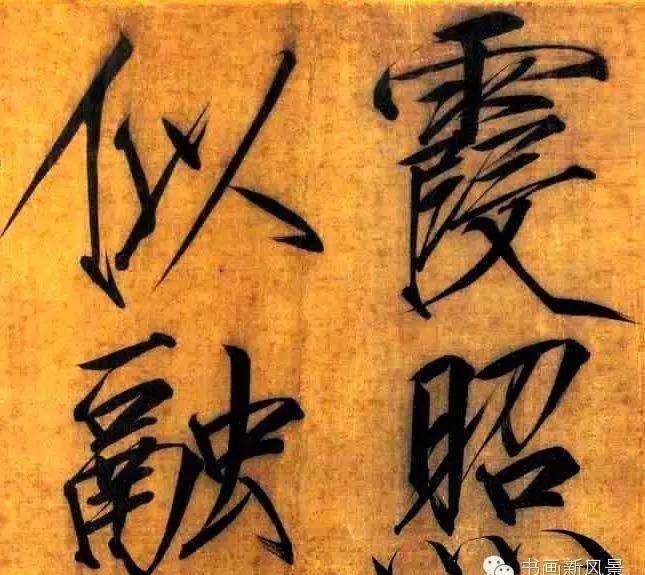 霞照
似融
书画新风景